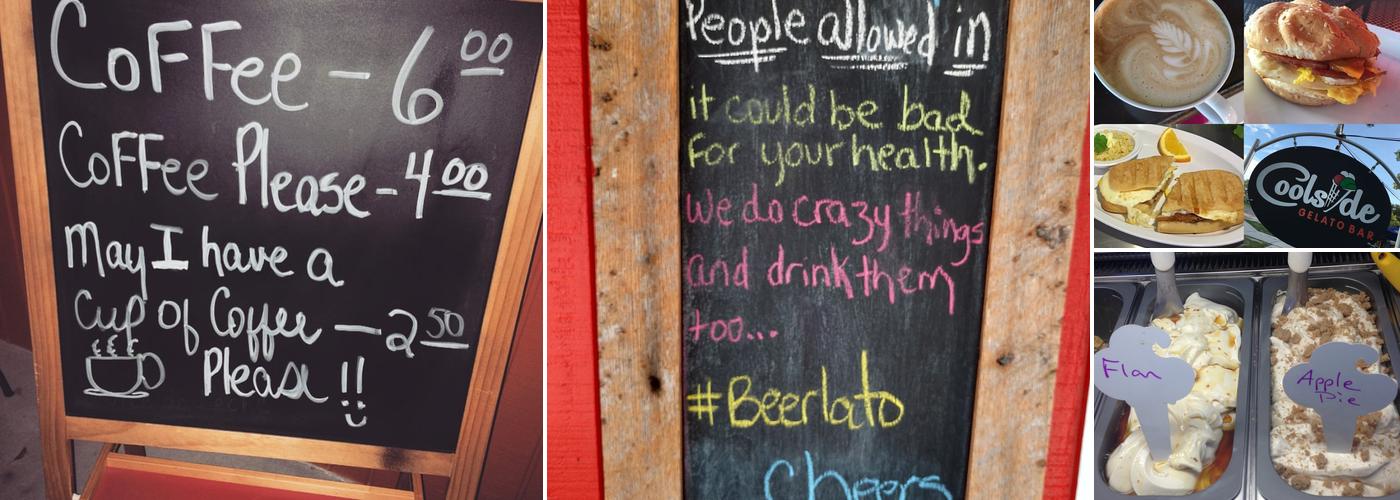 CoFFee - 6 00
CoFFee Please - 4 00
May I have a
Cup of Coffee - 2 50
Please !!
People allowed in
it could be bad
for your health.
We do crazy things
and drink them
too...
#Beerlato
Cheers
Coolside
GELATO BAR
Flan
Apple
Pie